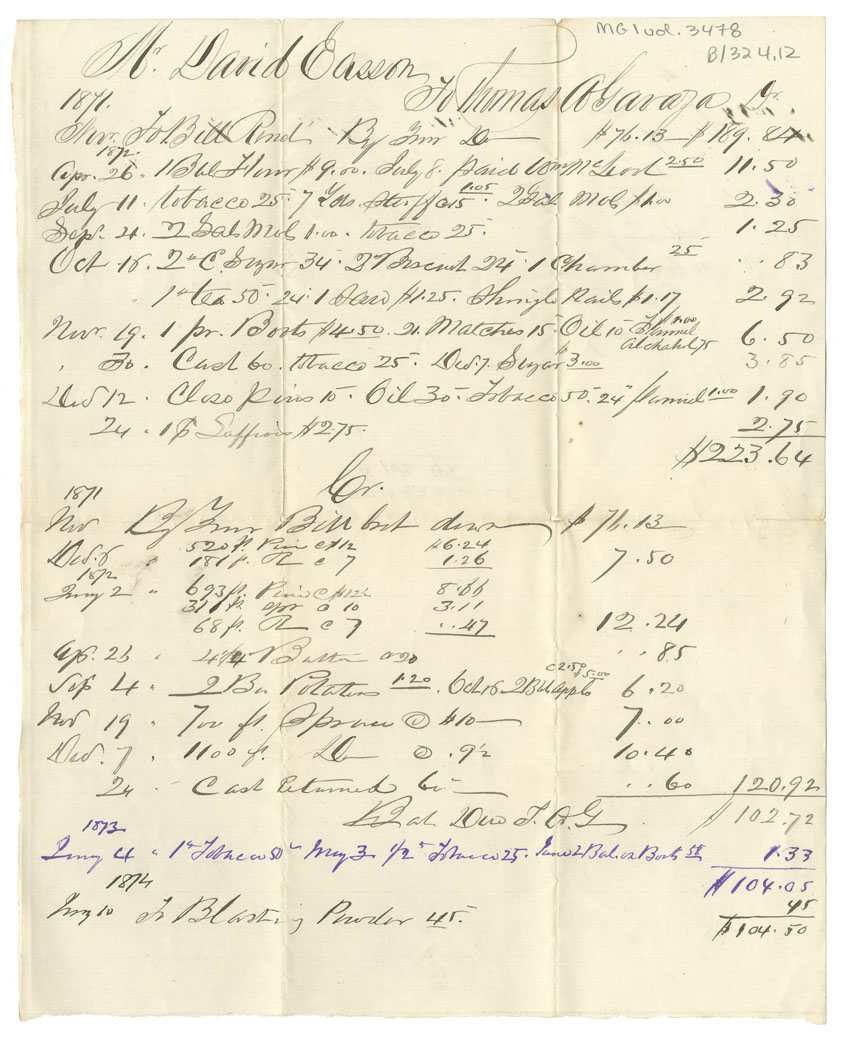 MG1 vol. 3478
B/324.12
Mr David Easson
To Thomas A Gavaza Dr.
1871.
Novr. To Bill Rend By Inr Do $76.13 $189.84
1872.
Apr. 26. 1 Bbl Flour $9.00. July 8. paid Wm McLeod 2.50 11.50
July 11. tobacco 25. 7 Yds. 15. 1.05 2 Gal Mob 1.00 2.30
Sept. 21. 2 Gal Mob 1.00. tobacco 25. 1.25
Oct 16. 2 C. Sugar 34. 2 Biscuit 24. 1 Chamber 25 .. 83
1 tea 50. 24. 1 Saw $1.25. Shingle Nails $1.17 2 92
Novr. 19. 1 pr. Boots $4.50. 21. Matches 15. Oil 10. Flannel 1.00
Alchahel 75 6.50
" 30. Cash 60. tobacco 25. Decd 7. Sugar $3.00 3.85
Decd 12. Close pins 10. Oil 30. Tobacco 50. 24" flannel 1.00 1.90
24. 1 $2.75. 2.75
$223.64
Cr.
1871
Nov By Inr Bill bot down $76.13
Decd. 6 " 520 ft. Pine @ 12 $6.24
181 ft. R @ 7 1.26 7.50
1872
Jany 2 " 693 ft. Pine @ 8.66
311 ft. Spr @ 10 3.11
68 ft. R @ 7 ..47 12.24
Ap. 23 " 4 1/4 Butter @ 20 .. 85
Sep 4 " 2 Bu Potatoes 1.20. Oct 16. 2 Bbl. Appls @ 2.50 $5.00 6.20
Nov 19 " 700 ft. Spruce @ $10 7.00
Decd. 7 " 1100 ft. Do @ .9 1/2 10.40
24 " Cash Returned 60 .. 60 120.92
Bal Due T. A. G $102.72
1873
Jany 4 " 1 Tobacco 50 May 3 1/2 Tobacco 25. June 2 Bal. on Boots 58 1.33
$104.05
1874
Jny 10 To Blasting Powder 45. 45
$104.50